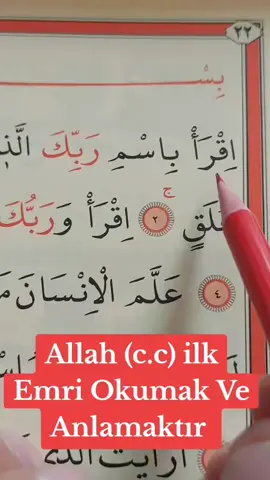 ٢٢
بِسْ
اِقْرَأْ بِاسْمِ رَبِّكَ الَّذ۪ي
عَلَقٍ ۚ ٢ اِقْرَأْ وَرَبُّكَ
٤ عَلَّمَ الْاِنْسَانَ مَ
اَرَاَيْتَ الَّذ۪ي
Allah (c.c) ilk
Emri Okumak Ve
Anlamaktır